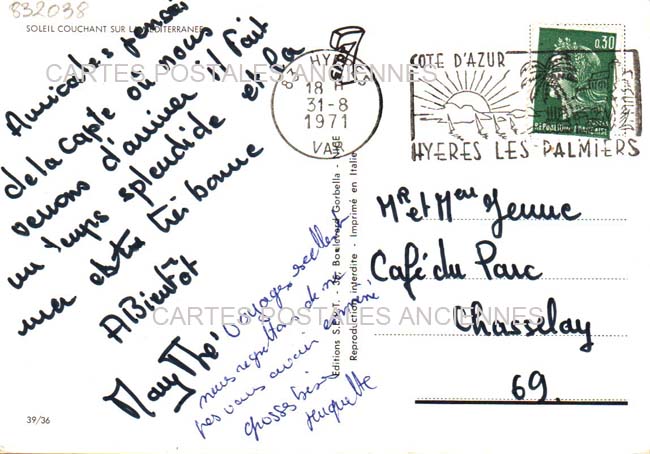 832038
SOLEIL COUCHANT SUR LA MEDITERRANEE
Amicales pensées
de la Capte où nous
venons d'arriver il fait
un temps splendide et la
mer est très bonne
A Bientôt
Mary Thé
Voyage
nous regrettons de ne
pas vous avoir emmené
grosses bises
Huguette
39/36
Editions S.E.P.T. - Boulevard Gorbella - NICE
Reproduction interdite - Imprimé en Italie
83 HYERES
18 H
31-8
1971
VAR
COTE D'AZUR
HYERES LES PALMIERS
0,30
REPUBLIQUE FRANCAISE
Mr et Mme Jenne
Café du Parc
Chasselay
69.
CARTES POSTALES ANCIENNES
CARTES POSTALES ANCIENNES